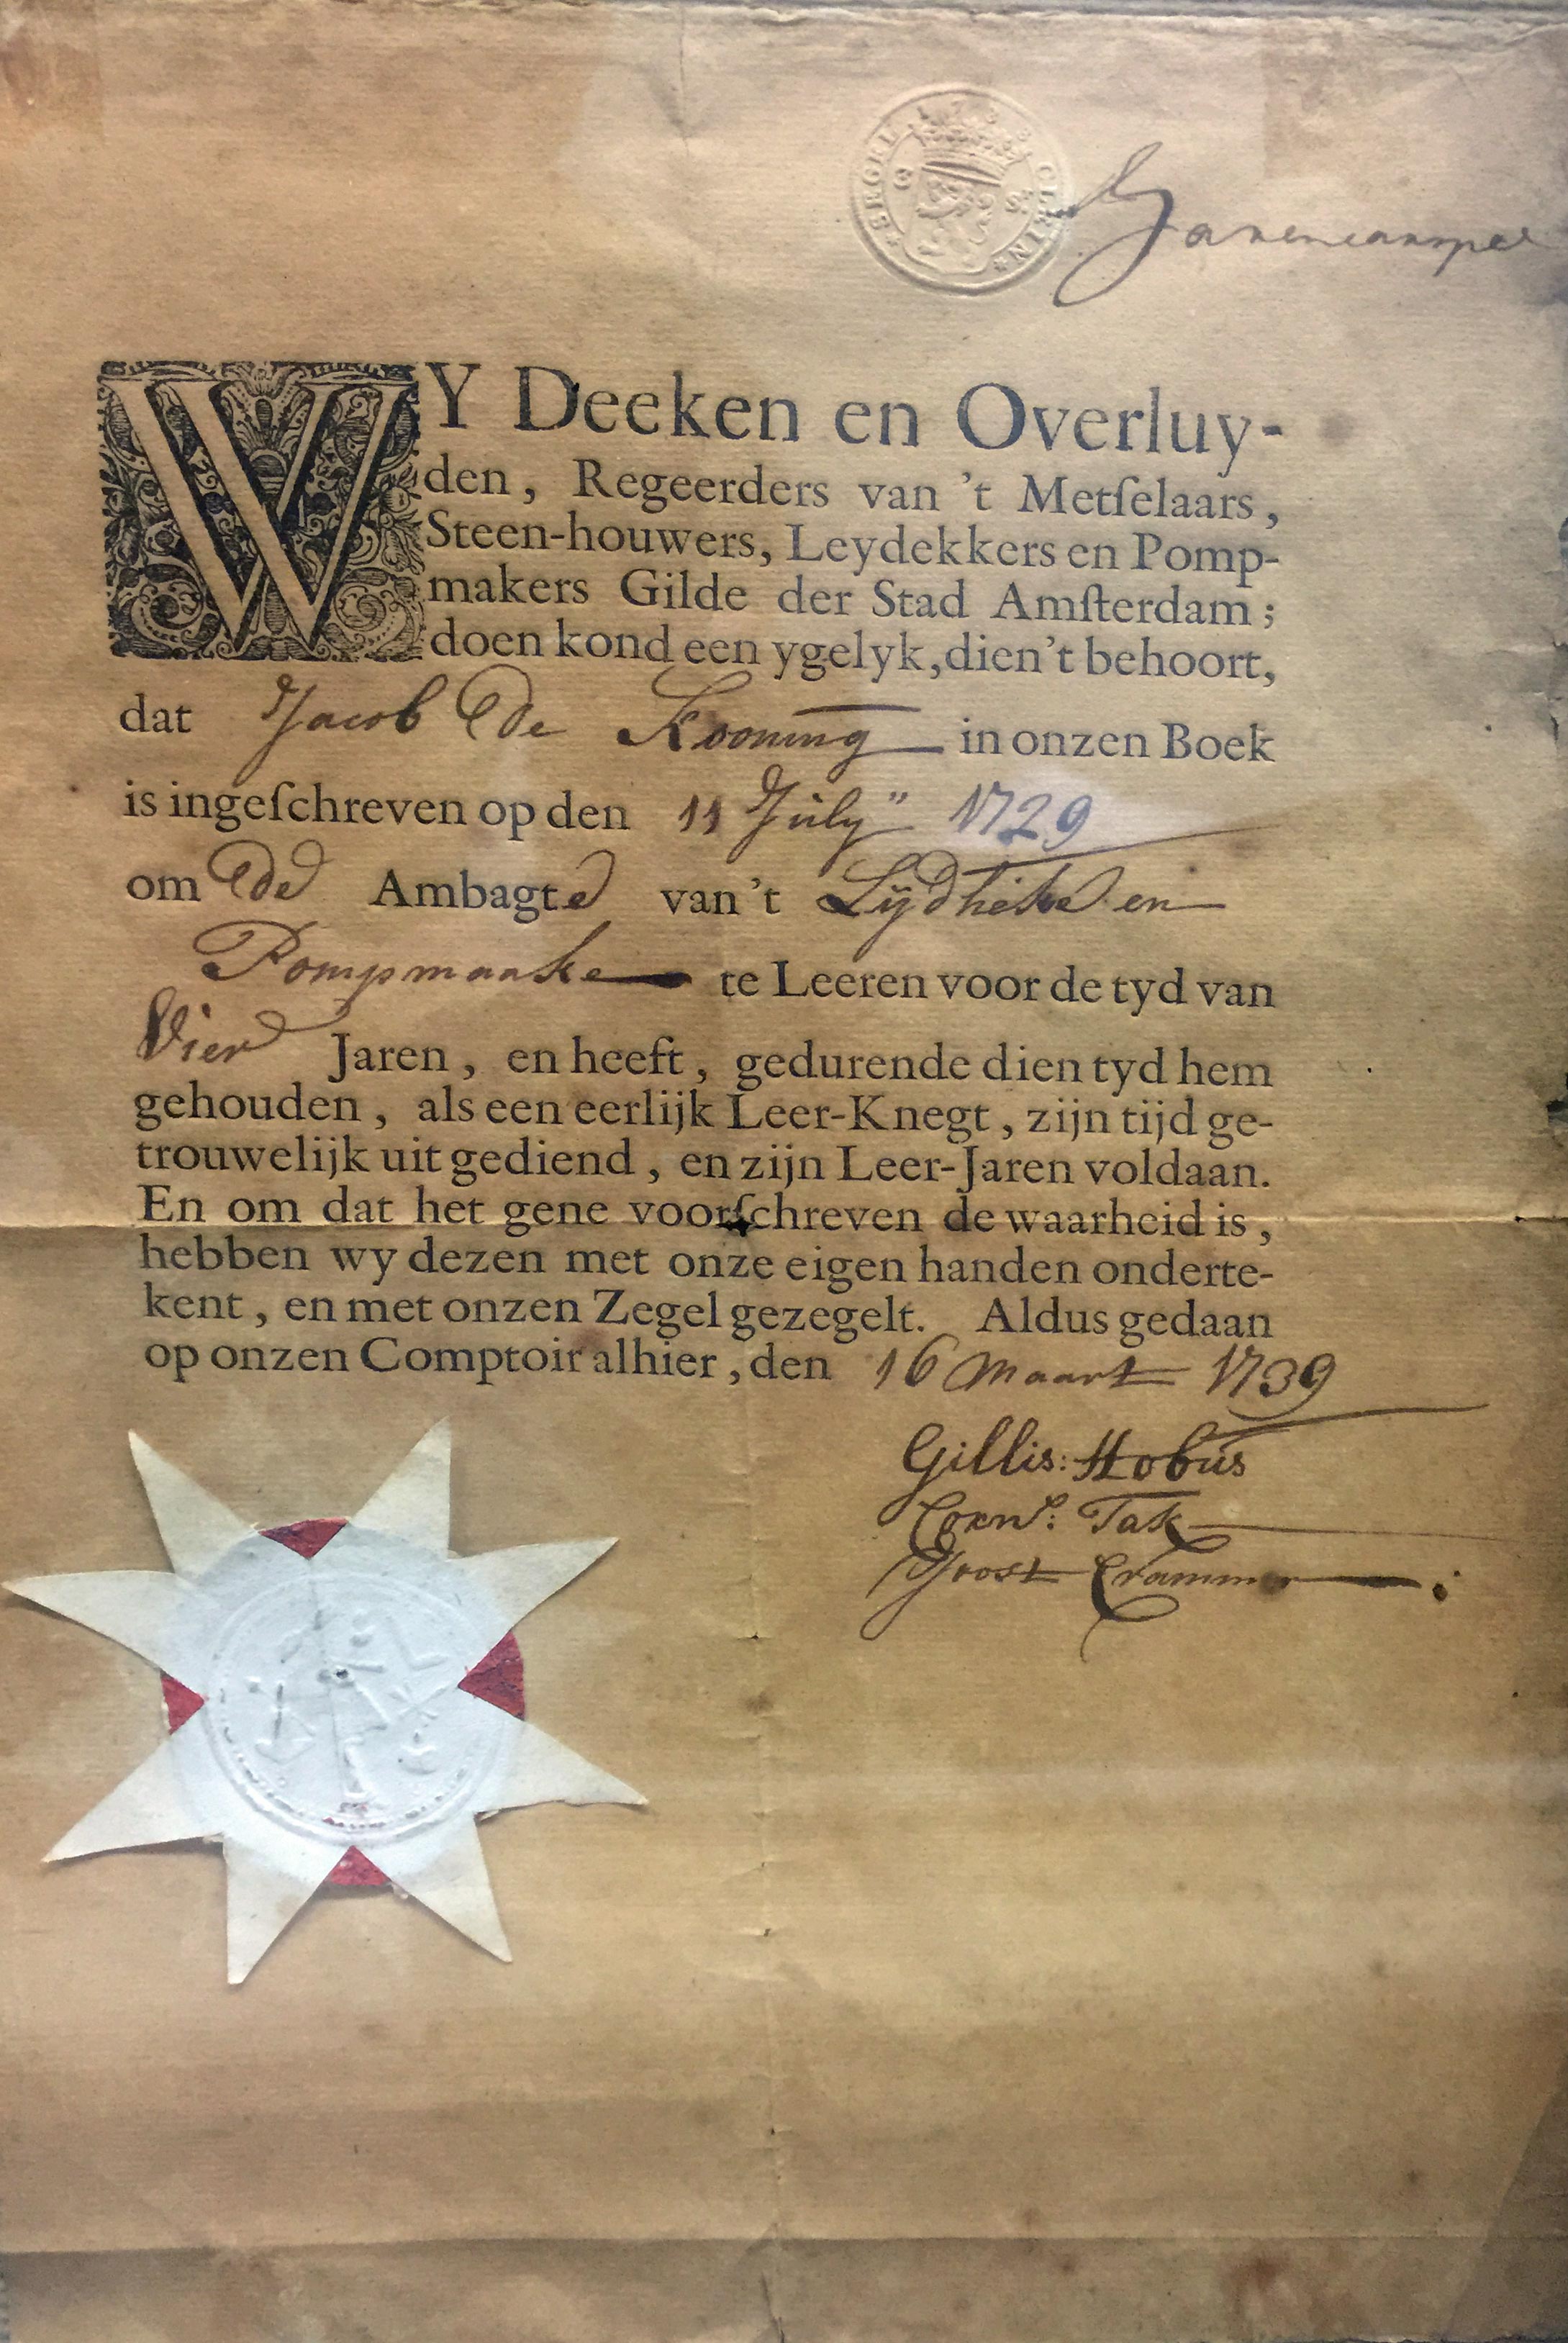 WY Deeken en Overluy-
den, Regeerders van 't Metſelaars,
Steen-houwers, Leydekkers en Pomp-
makers Gilde der Stad Amſterdam;
doen kond een ygelyk, dien't behoort,
dat Jacob De Kooning in onzen Boek
is ingeſchreven op den 11 July 1729
om De Ambagte van 't en
Pompmaake te Leeren voor de tyd van
Vier Jaren, en heeft, gedurende dien tyd hem
gehouden, als een eerlijk Leer-Knegt, zijn tijd ge-
trouwelijk uit gediend, en zijn Leer-Jaren voldaan.
En om dat het gene voorſchreven de waarheid is,
hebben wy dezen met onze eigen handen onderte-
kent, en met onzen Zegel gezegelt. Aldus gedaan
op onzen Comptoir alhier, den 16 Maart 1739
Gillis: Hobus
Corns: Tak
Joost Crammer